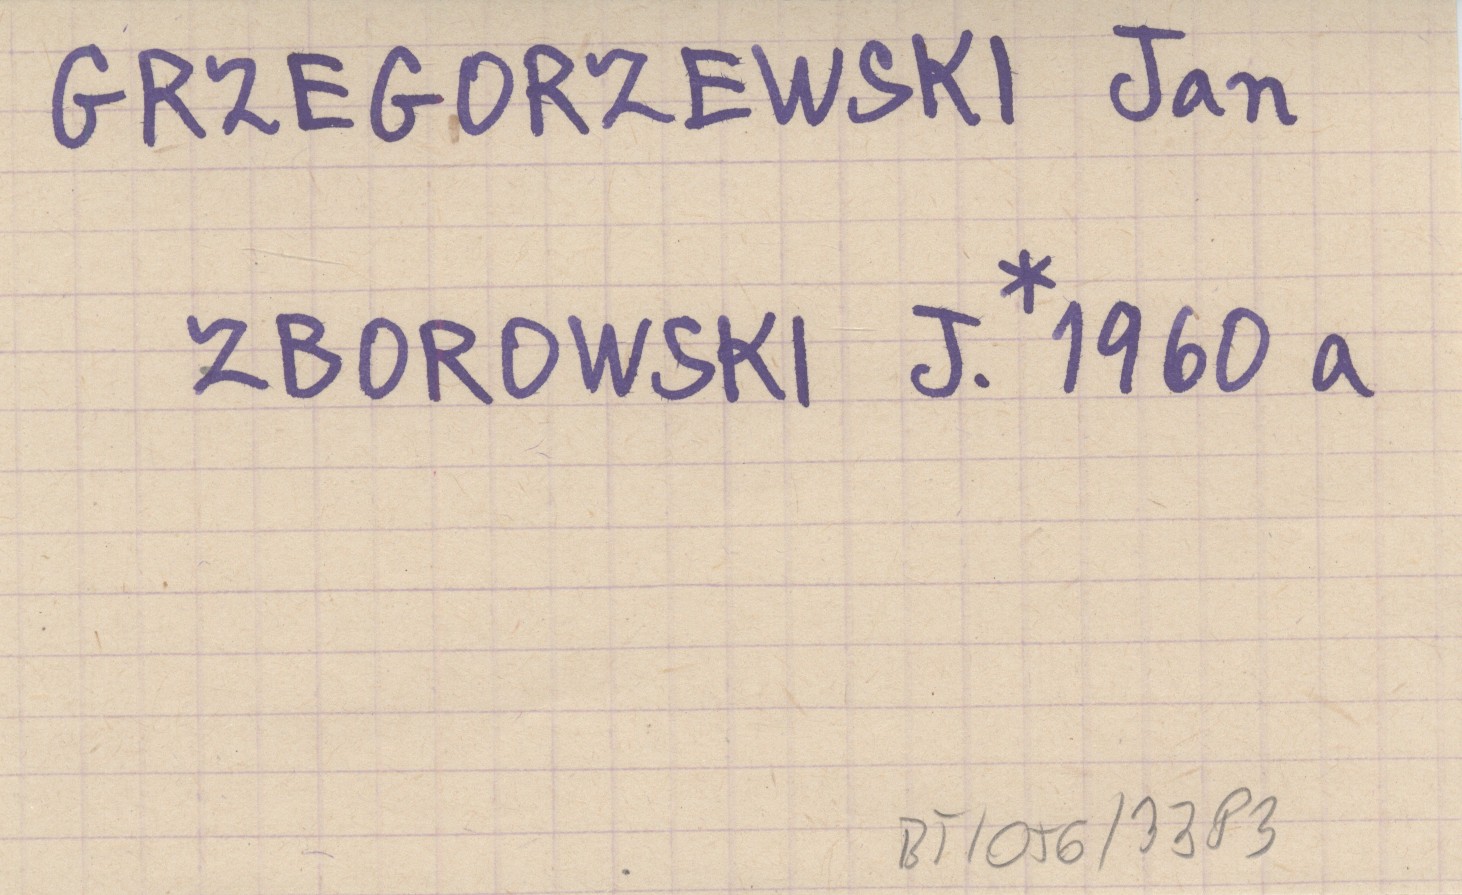 GRZEGORZEWSKI Jan
ZBOROWSKI J.*1960 a
BT/056/3383